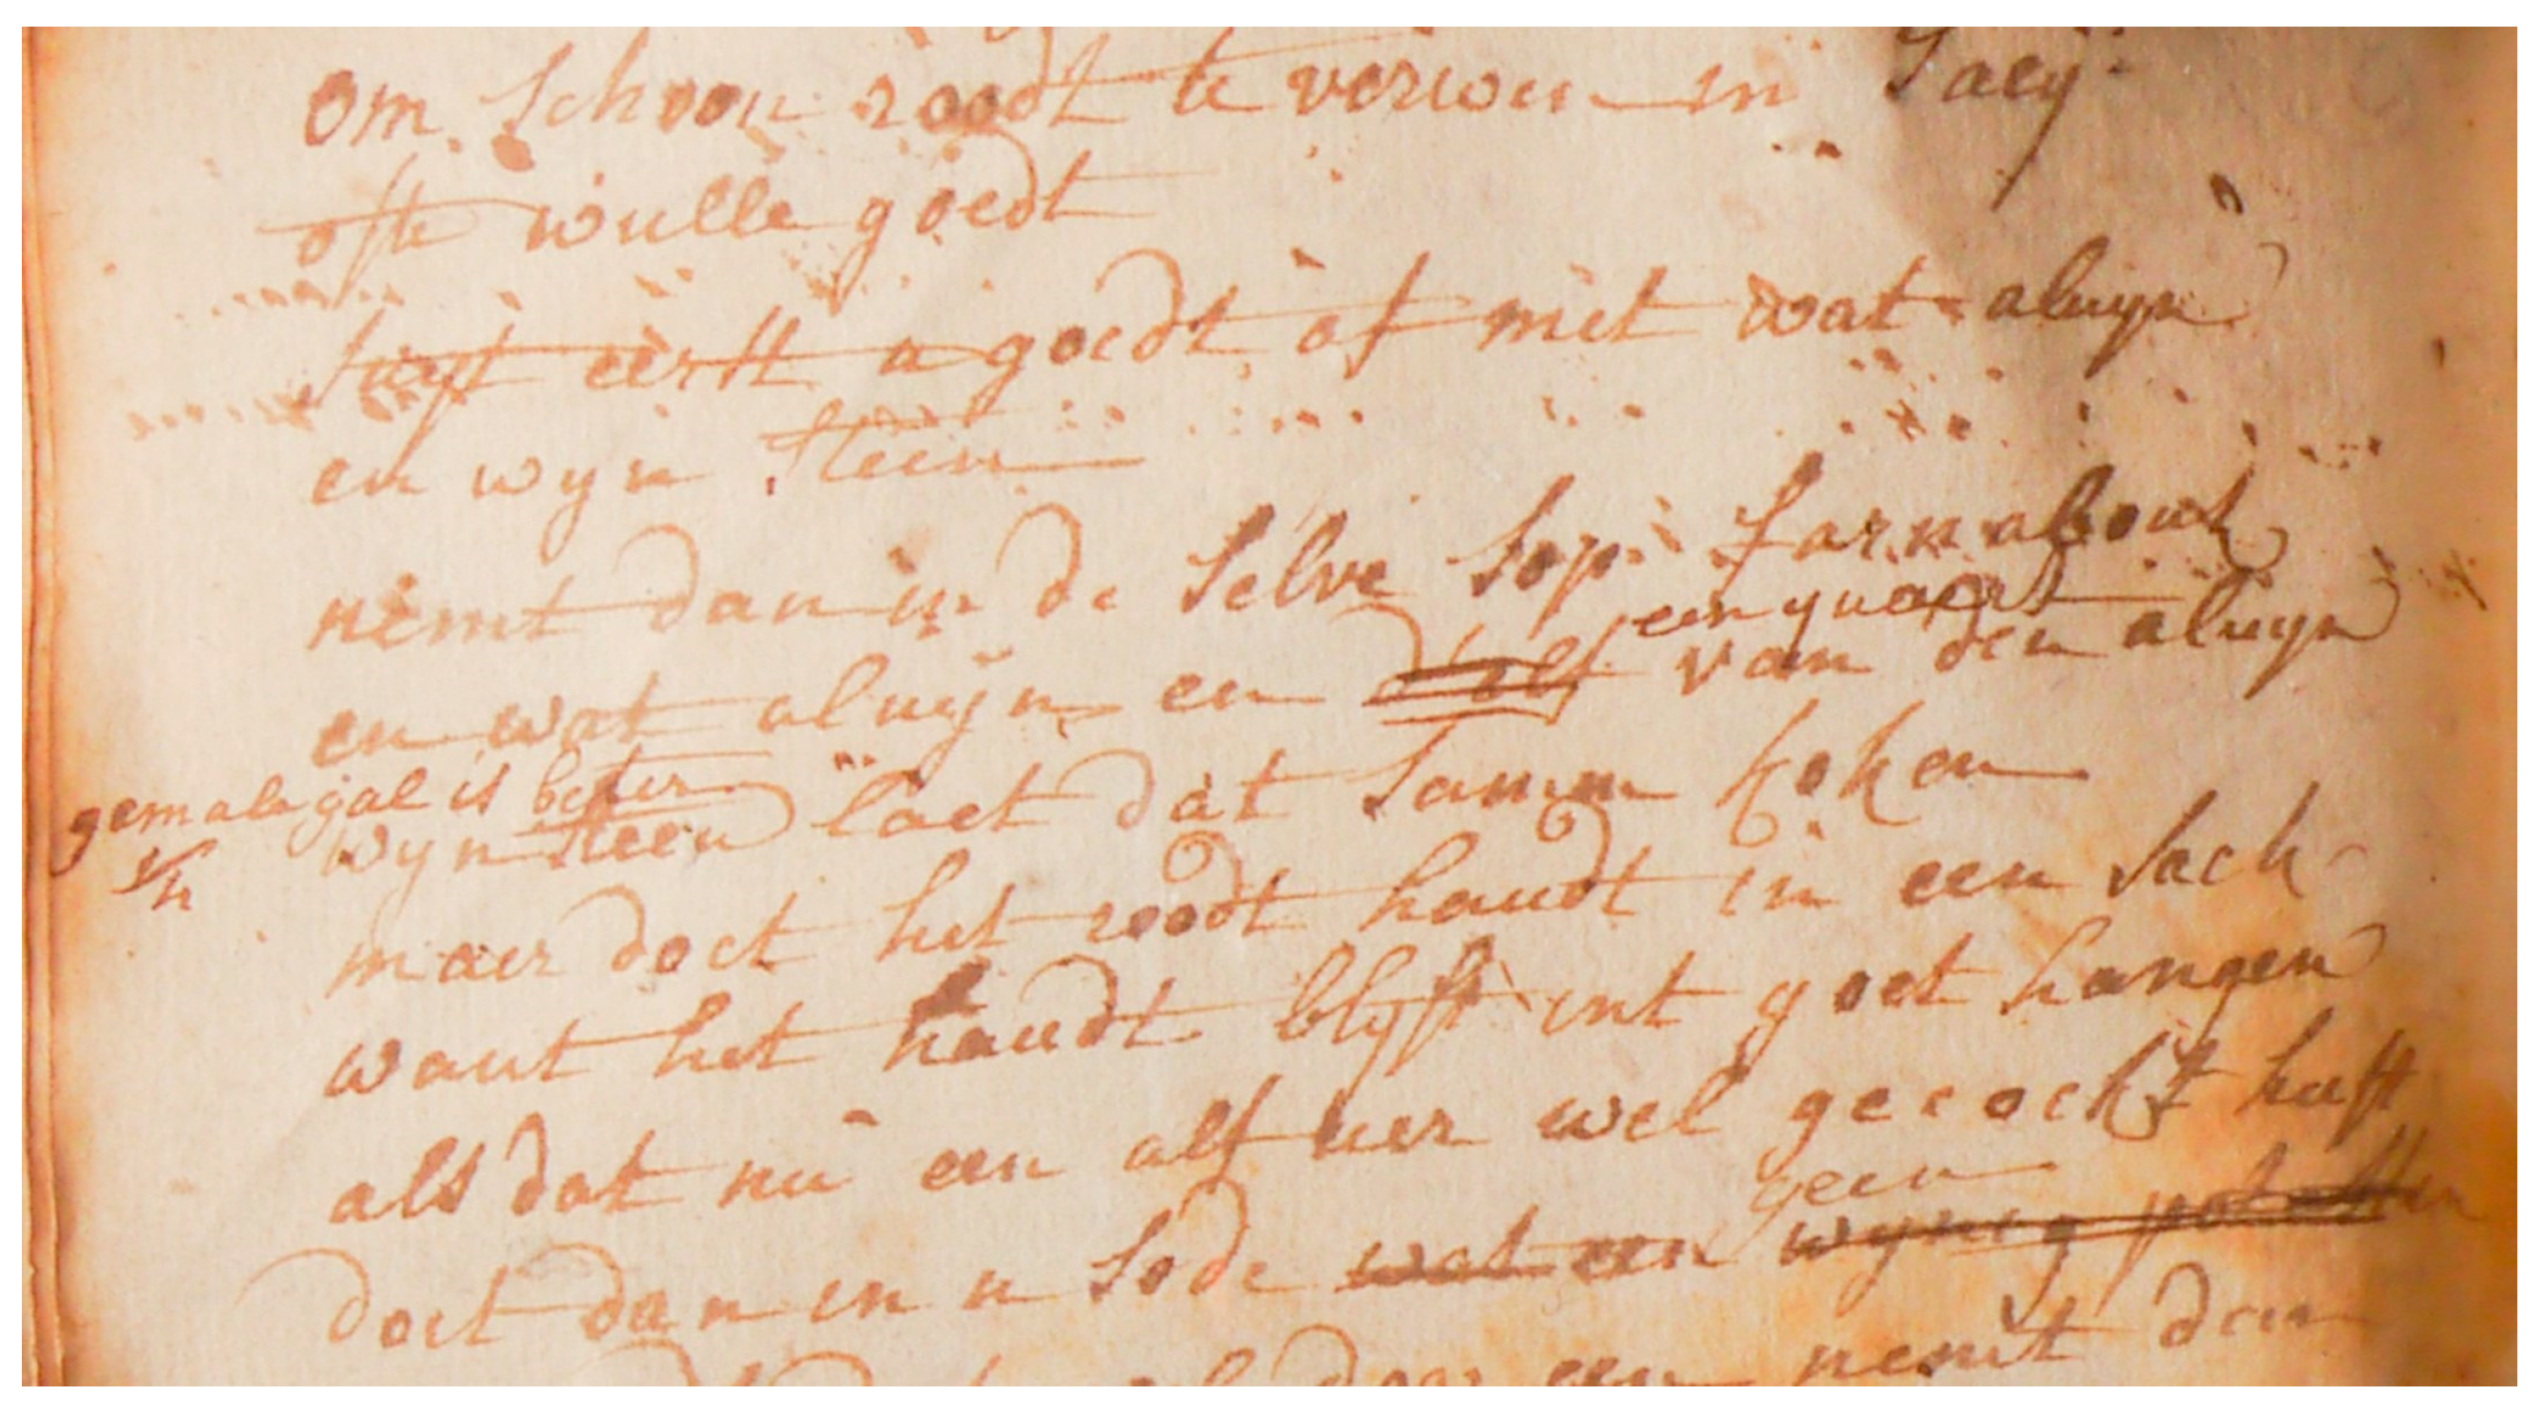 om schoon roodt te verwen in saey
ofte wulle goedt
suyt eerst u goedt af met wat aluyn
en wyn steen
nemt dan in de selve sop farnabout
een quaert
en wat aluyn en d'elf van den aluyn
gemale gal is beter
wynsteen laet dat samen koken
maer doet het roodt haudt in een sack
want het haudt blyft int goet hangen
als dat nu een alf uer wel gecockt heeft
geen
doet dan in u sode wat een wynig potassen
daer een nemt den